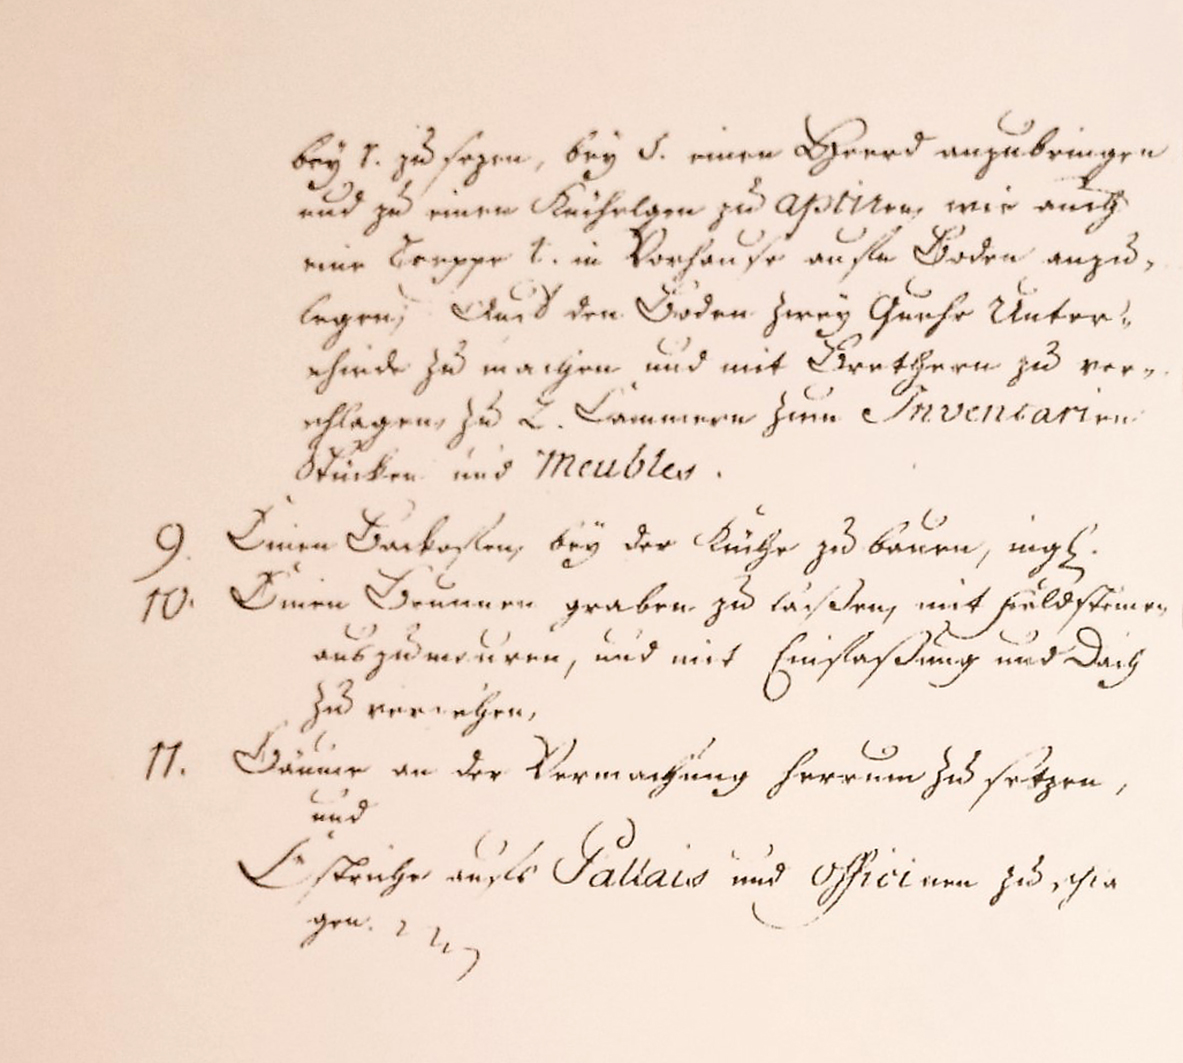 bey r. zu sezen, bey s. einen Heerd anzubringen
und zu einen Küchelgen zu aptiren, wie auch
eine Treppe t. in Vorhause aufn Boden anzu-
legen, Auf den Boden zwey Quehr Unter-
schiede zu machen und mit Brethern zu ver-
schlagen, zu 2. Cammern zum Inventarien
Stücken und Meubles.
9. Einen Backofen, bey der Küche zu bauen, ingl.
10. Einen Brunnen graben zu laißen, mit Feldsteinen
auszumauren, und mit Einfaßung und Dach
zu versehen,
11. Bäume an der Vermachung herrum zu setzen,
und
Estriche aufs Pallais und Officinen zu schla
gen.